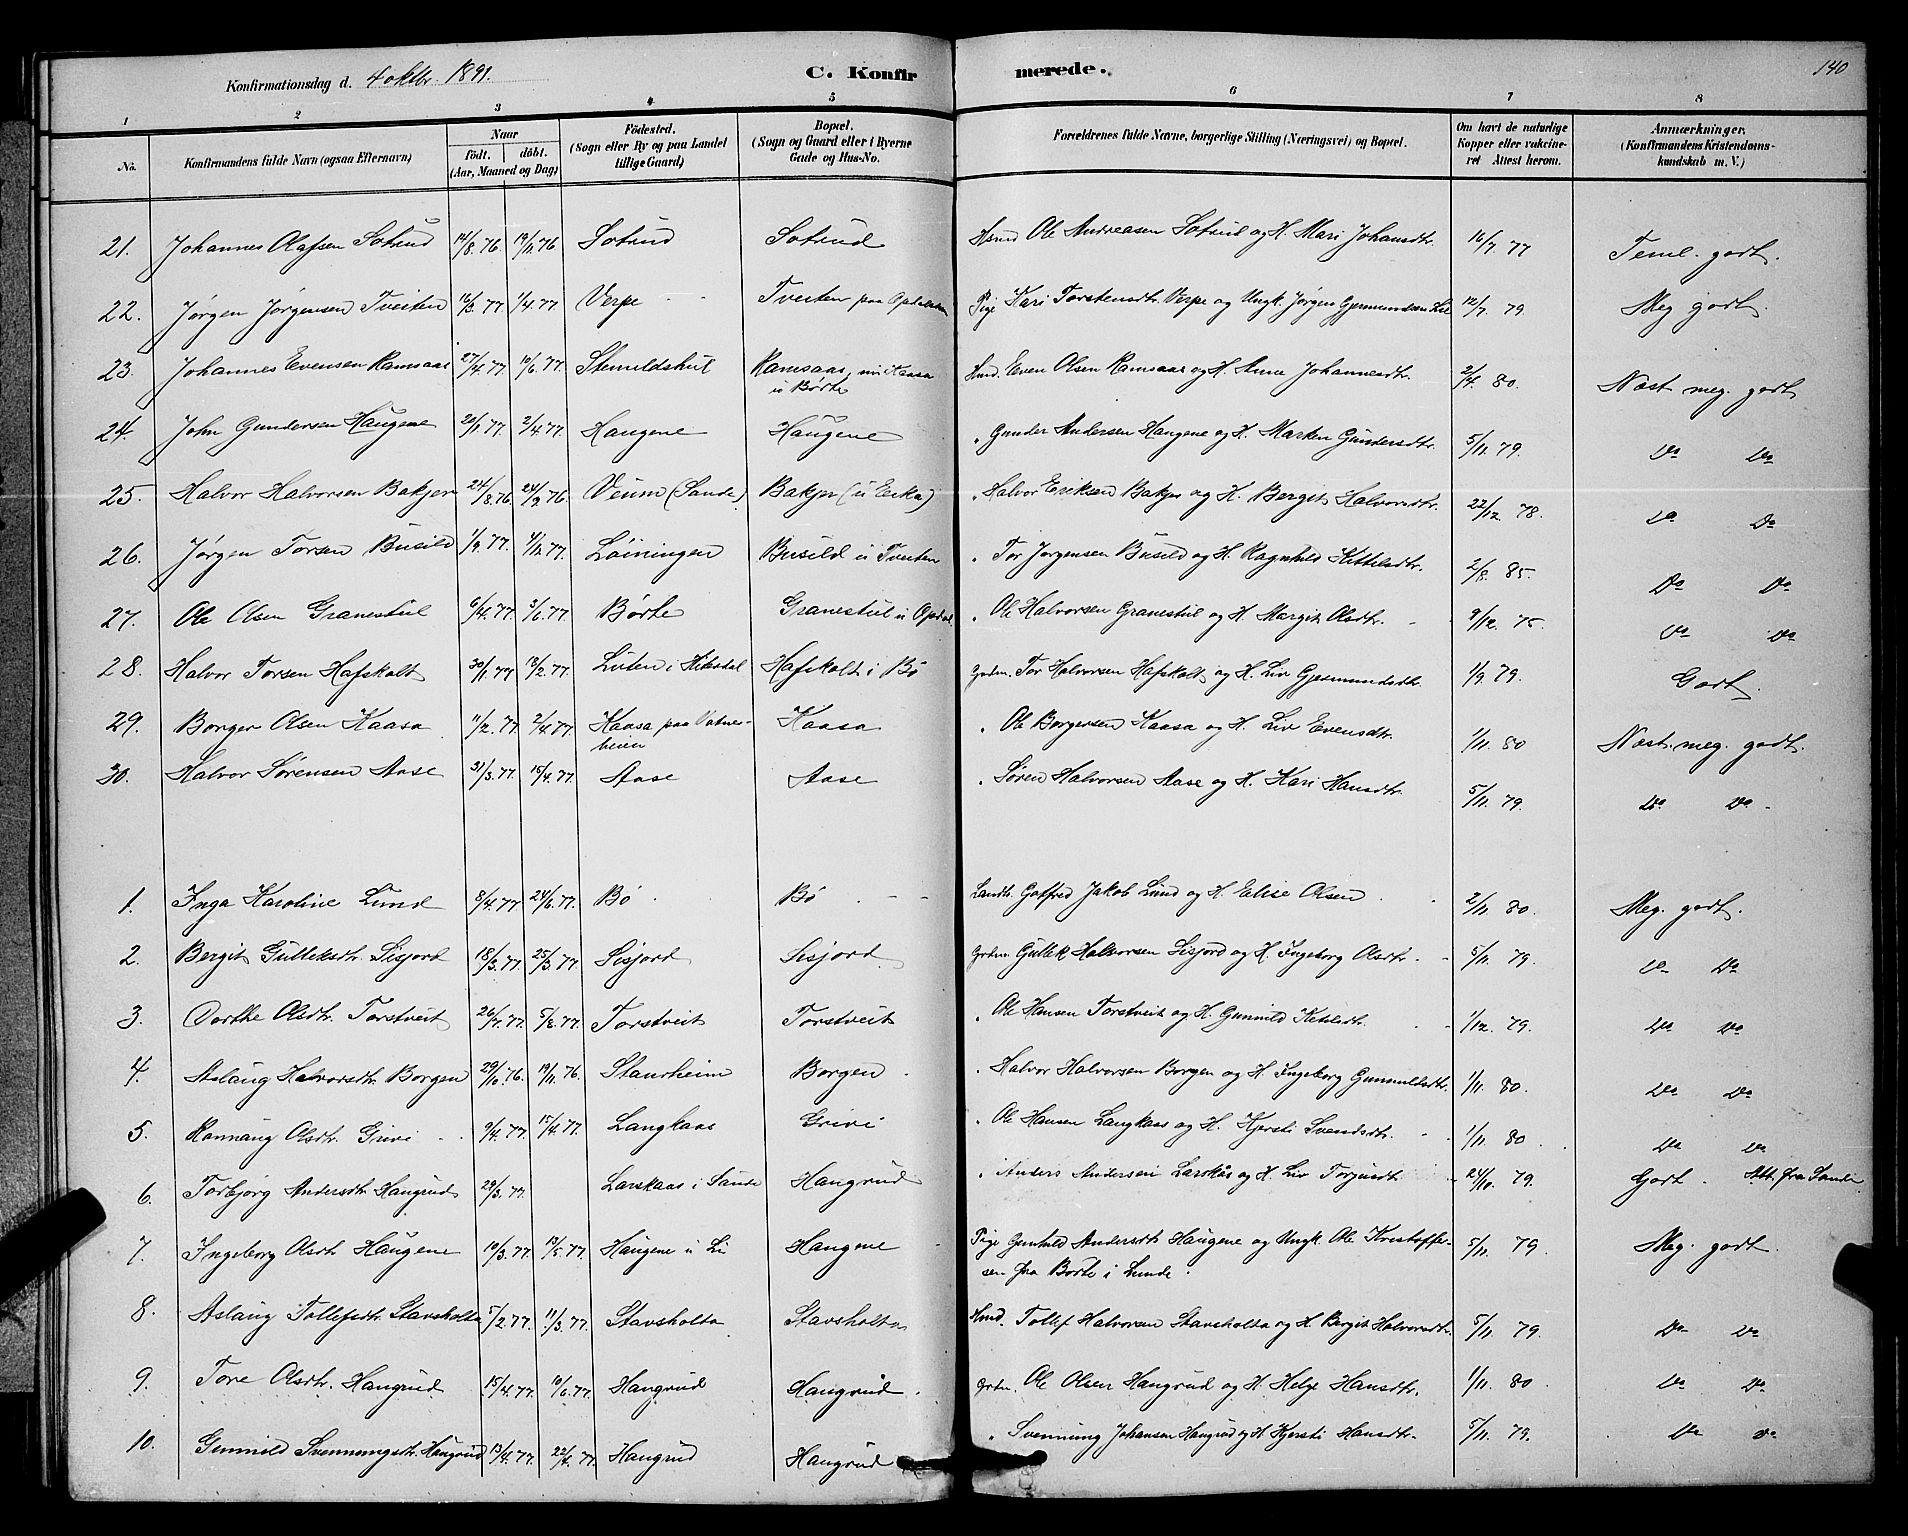 Konfirmationsdag d. 4 oktbr. 1891.
C. Konfirmerede.
140
1 2 3 4 5 6 7 8
No.
Konfirmandens fulde Navn (ogsaa Efternavn)
Naar
födt. döbt.
(Aar, Maaned og Dag)
Födested.
(Sogn eller By og paa Landet
tillige Gaard)
Bopæl.
(Sogn og Gaard eller i Byerne
Gade og Hus-No.
Forældrenes fulde Navne, borgerlige Stilling (Næringsvei) og Bopæl.
Om havt de naturlige
Kopper eller vakcine-
ret Attest herom.
Anmærkninger.
(Konfirmandens Kristendoms-
kundskab m. V.)
21. Johannes Olafsen Sotrud 14/8. 76. 19/11. 76 Sotrud Sotrud Hsmd Ole Andreasen Sotrud og H. Mari Johansdtr. 16/7. 77 Teml. godt.
22. Jørgen Jørgensen Tveiten 1/4. 77 Verpe Tveiten paa Pige Kari Torstensdtr. Verpe og Ungk. Jørgen Gjermundsen Lie 12/7. 79. Meg godt.
23. Johannes Evensen Ramsaas 27/4. 77. 10/6. 77. Ramsaas, Kaasa
u Børte Hmd. Even Olsen Ramsaas og H. Anne Johannesdtr. 2/4. 80. Næst meg. godt
24. John Gundersen Haugene 20/1. 77. 2/4. 77. Haugene Haugene " Gunder Andersen Haugene og H. Marken Gundersdtr. 5/11. 79. Do Do
25. Halvor Halvorsen Bakjer 24/8. 76. 24/9. 76. Veum (Sande) Bakjer (u Eika) " Halvor Eriksen Bakjer og H. Bergit Halvorsdtr. 22/12. 78. Do Do
26. Jørgen Torsen Busild 1/9. 77. 4/11. 77. Løiningen Busild u Tveiten " Tor Jørgensen Busild og H. Ragnhild Kittelsdtr. 2/8. 85. Do Do
27. Ole Olsen Granestul 6/4. 77. 3/6. 77. Børte Granestul u " Ole Halvorsen Granestul og H. Margit Olsdtr. 9/12. 75. Do Do
28. Halvor Torsen Hafskolt 30/1. 77 18/2. 77. i Hitterdal Hafskolt i Bø Grdm. Tor Halvorsen Hafskolt og H. Liv Gjermundsdtr. 1/9. 79. Godt.
29. Borger Olsen Kaasa 11/2. 77. 2/4. 77. Kaasa paa Vatne-
heien Kaasa " Ole Borgersen Kaasa og H. Liv Evensdtr. 1/11. 80 Næst. meg. godt.
30. Halvor Sørensen Aase 31/3. 77. 15/4. 77. Aase Aase " Søren Halvorsen Aase og H. Kari Hansdtr. 5/11. 79. Do Do
1. Inga Karoline Lund 8/4. 77 24/6. 77. Bø Bø Landh. Gotfred Jakob Lund og H. Elise Olsen 2/11. 80. Meg. godt.
2. Bergit Gulleksdtr. Sisjord 18/3. 77. 25/3. 77. Sisjord Sisjord Grdm. Gullek Halvorsen Sisjord og H. Ingeborg Olsdtr. 5/11. 79. Do Do
3. Dorthe Olsdtr. Torstveit 26/7. 77. 5/8. 77. Torstveit Torstveit " Ole Hansen Torstveit og H. Gunnild Ketilsdtr. 1/12. 79. Do Do
4. Aslaug Halvorsdtr. Borgen 29/10. 76. 19/11. 76. Staurheim Borgen " Halvor Halvorsen Borgen og H. Ingeborg Gunnulfsdtr. 1/11. 80. Do Do
5. Rannaug Olsdtr. Grivi 9/4. 77. 15/4. 77. Langkaas Grivi " Ole Hansen Langkaas og H. Kjersti Svendsdtr. 1/11. 80 Do Do
6. Torbjørg Andersdtr. Haugrud 29/3. 77. Larskaas i Sande Haugrud " Anders Andersen Larskås og H. Liv 24/10. 79. Godt. Att. fra Sande
7. Ingeborg Olsdtr Haugene 19/3. 77. 13/5. 77. Haugene u Li Haugene Pige Gunhild Andersdtr Haugene og Ungk. Ole Kristoffer-
sen fra Borte i Lunde. 5/11. 79. Meg. godt.
8. Aslaug Tollefsdtr. Stavsholta 5/2. 77. 11/3. 77. Stavsholta Stavsholta Hmd. Tollef Halvorsen Stavsholta og H. Bergit Halvorsdtr. 5/11. 79. Do Do
9. Tore Olsdtr. Haugrud 15/4. 77. 10/6. 77. Haugrud Haugrud Grdm. Ole Olsen Haugrud og H. Helge Hansdtr. 1/11. 80 Do Do
10. Gunnild Svenningsdtr. Haugrud 13/4. 77. 22/4. 77. Haugrud Haugrud " Svenning Johansen Haugrud og H. Kjersti Hansdtr. 5/11. 79. Do Do